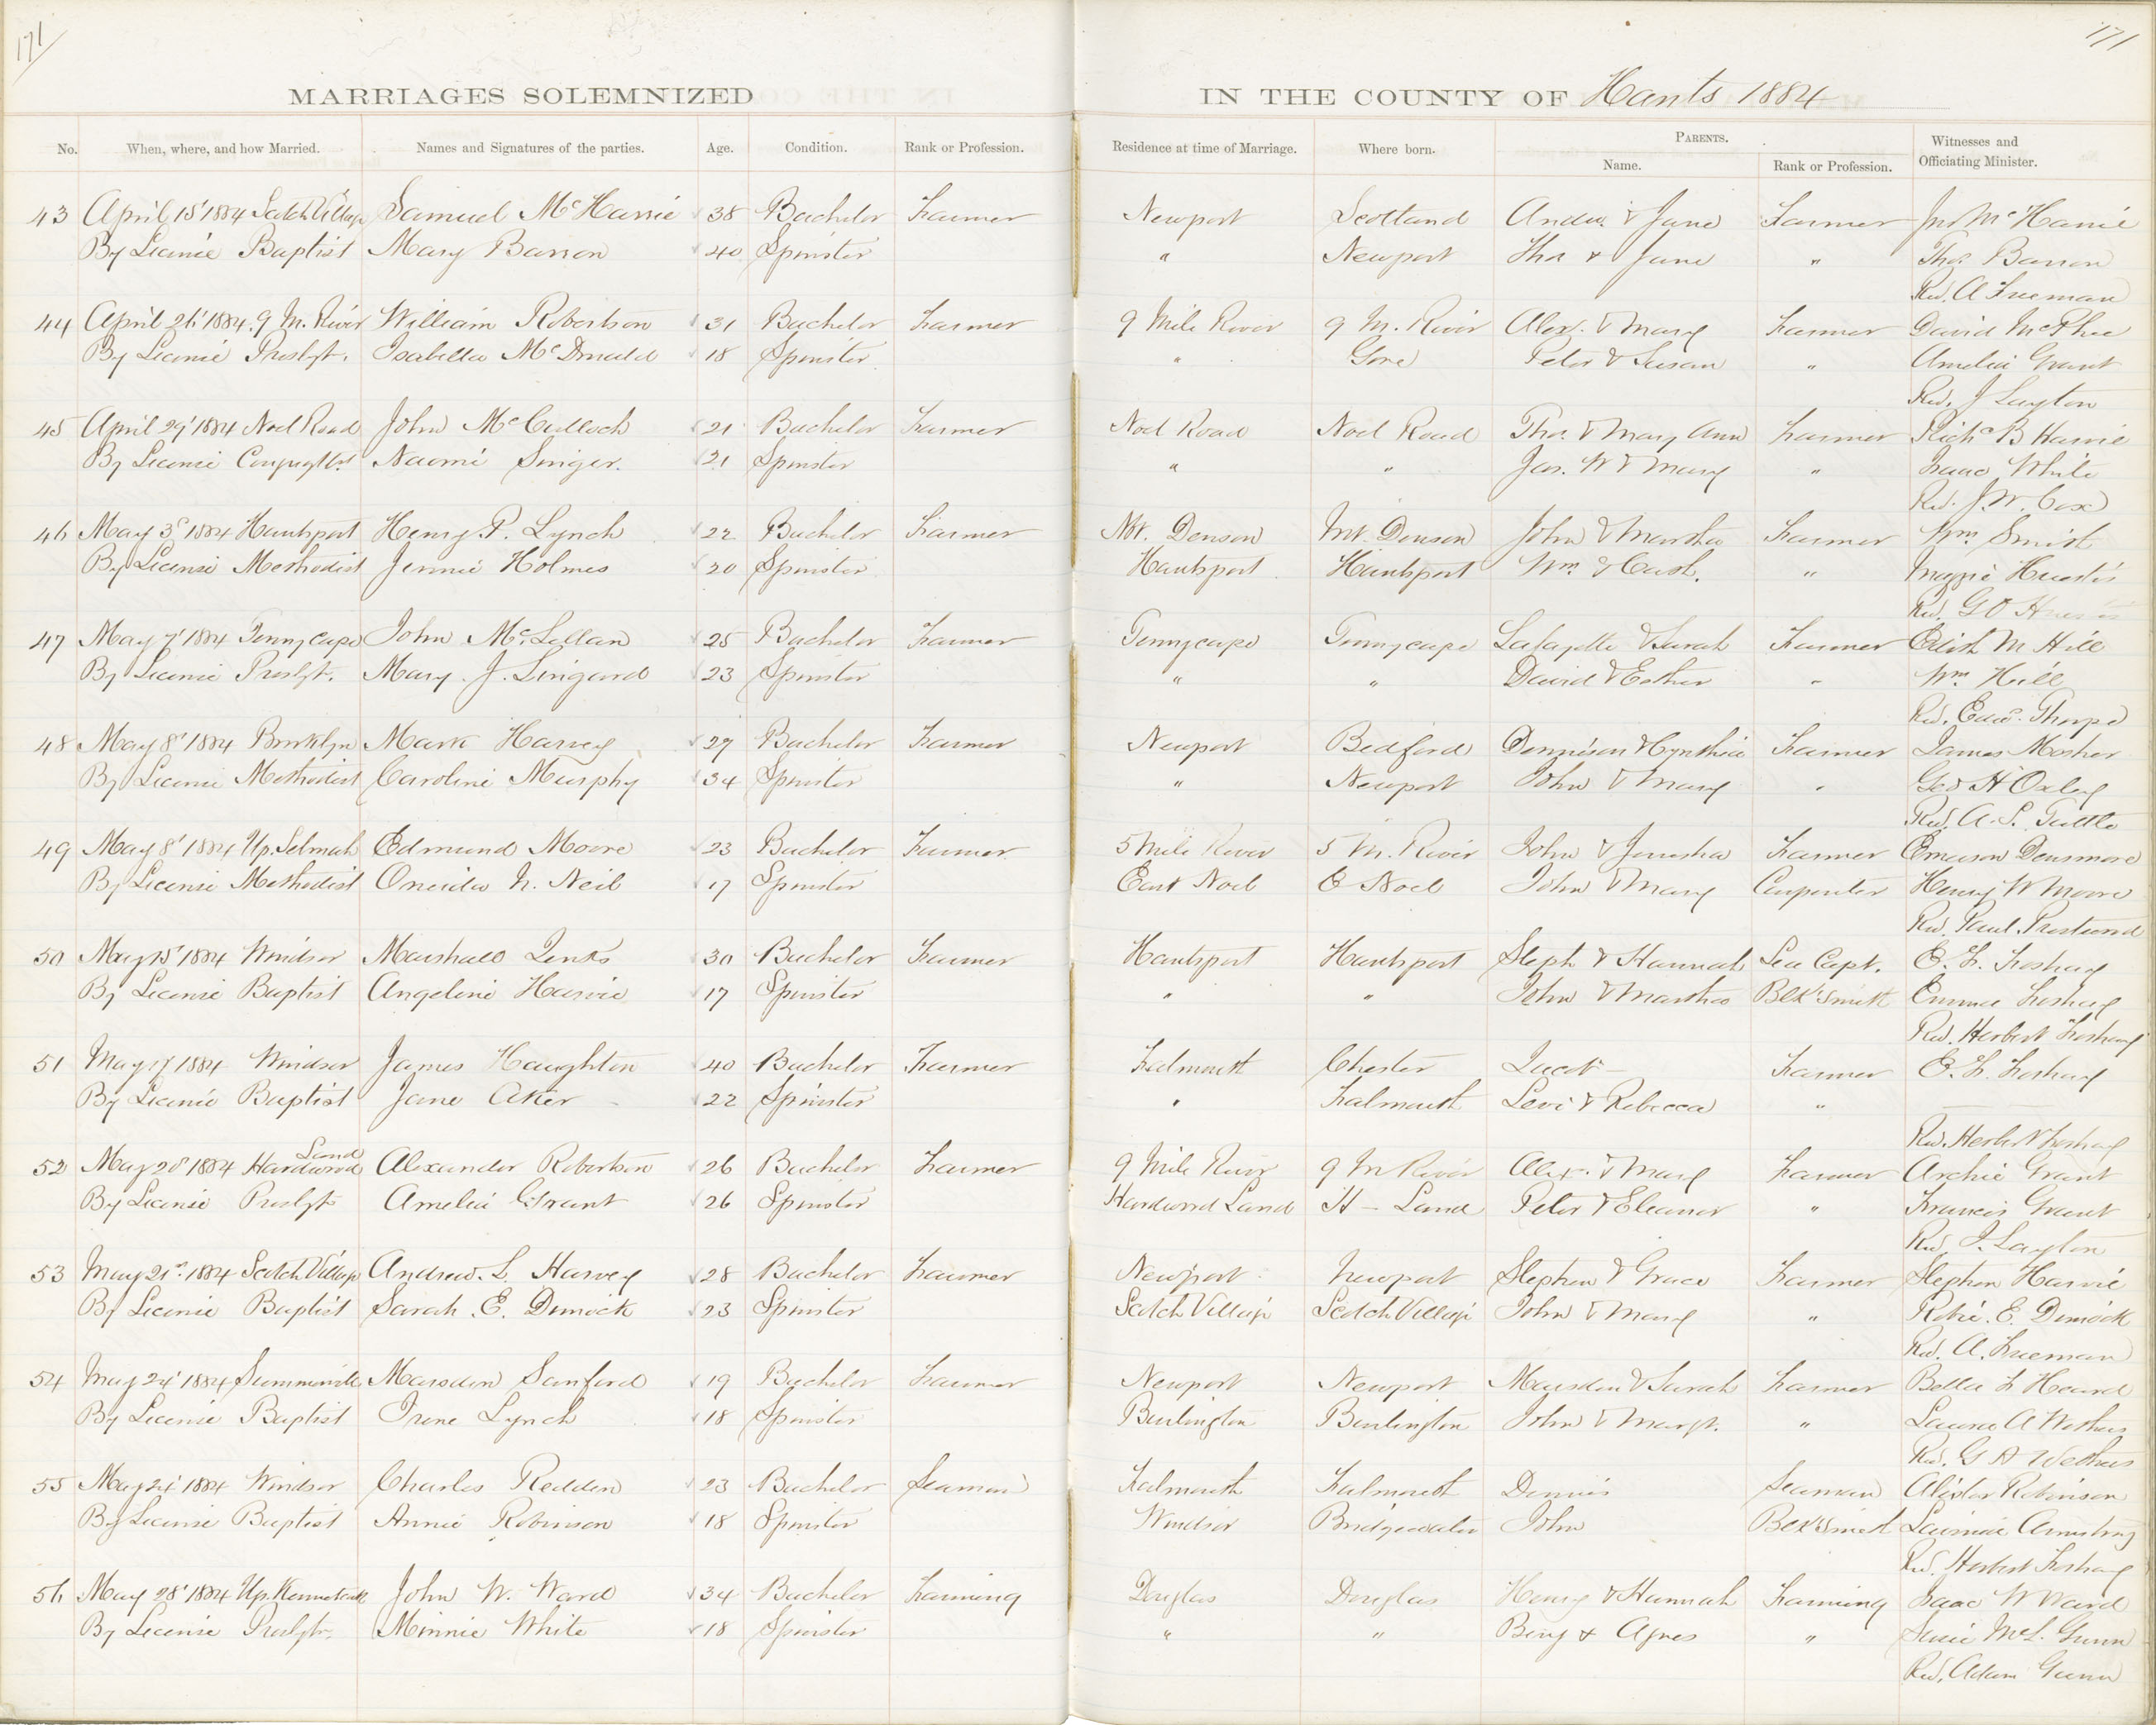 171
171
MARRIAGES SOLEMNIZED IN THE COUNTY OF Hants 1884
No. When, where, and how Married. Names and Signatures of the parties. Age. Condition. Rank or Profession. Residence at time of Marriage. Where born. PARENTS. Name. Rank or Profession. Witnesses and Officiating Minister.
43 April 15' 1884 Scotch Village Samuel McHarrie 38 Bachelor Farmer Newport Scotland Andw. & Jane Farmer Jno McHarrie
By License Baptist Mary Barron 40 Spinster " Newport Tho & Jane " Thos Barron
Rev. A Freeman
44 April 26' 1884 9 M. River William Robertson 31 Bachelor Farmer 9 Mile River 9 M. River Alex. & Mary Farmer David McPhee
By License Presbyt. Isabella McDonald 18 Spinster " Gore Peter & Susan " Amelia Grant
Rev. J Layton
45 April 29' 1884 Noel Road John McCulloch 21 Bachelor Farmer Noel Road Noel Road Thos & Mary Ann Farmer Richd B Harvie
By License Naomi Singer. 21 Spinster " " Jas. W & Mary " Isaac White
Rev. J. W. Cox
46 May 3d 1884 Hantsport Henry P. Lynch 22 Bachelor Farmer Mt. Denson Mt. Denson John & Martha Farmer Wm Smith
By License Methodist Jennie Holmes 20 Spinster Hantsport Hantsport Wm & Cath. " Maggie Huestis
Rev. G O Huestis
47 May 7' 1884 Tennycape John McLellan 25 Bachelor Farmer Tennycape Tennycape Lafayette & Sarah Farmer Edith M Hill
By License Presbyt. Mary. J. Lingard 23 Spinster " " David & Esther " Wm Hill
Rev. Edwd. Thorpe
48 May 8' 1884 Brooklyn Mark Harvey 27 Bachelor Farmer Newport Bedford Dennison & Cynthia Farmer James Mosher
By License Methodist Caroline Murphy 34 Spinster " Newport John & Mary " Geo H Oxley
Rev. A. S. Tuttle
49 May 8' 1884 Up. Selmah Edmund Moore 23 Bachelor Farmer 5 Mile River 5 M. River John & Jerusha Farmer Emerson Densmore
By License Methodist Oneida N. Neil 17 Spinster East Noel E Noel John & Mary Carpenter Henry W Moore
Rev. Paul. Prestwood
50 May 15' 1884 Windsor Marshall Lenks 30 Bachelor Farmer Hantsport Hantsport Steph & Hannah Sea Capt. E. F. Foshay
By License Baptist Angeline Harvie 17 Spinster " " John & Martha Blk Smith Emma Foshay
Rev. Herbert Foshay
51 May 17 1884 Windsor James Haughton 40 Bachelor Farmer Falmouth Chester Jacob — Farmer E. F. Foshay
By License Baptist Jane Aker 22 Spinster " Falmouth Levi & Rebecca "
Rev. Herbert Foshay
52 May 20' 1884 Hardwood Land Alexander Robertson 26 Bachelor Farmer 9 Mile River 9 M River Alex. & Mary Farmer Archie Grant
By License Presbyt Amelia Grant 26 Spinster Hardwood Land H — Land Peter & Eleanor " Francis Grant
Rev. J. Layton
53 May 21st 1884 Scotch Village Andrew. L. Harvey 28 Bachelor Farmer Newport Newport Stephen & Grace Farmer Stephen Harvie
By License Baptist Sarah. E. Dimock 23 Spinster Scotch Village Scotch Village John & Mary " Robie. E. Dimock
Rev. A. Freeman
54 May 24' 1884 Summerville Marsden Sanford 19 Bachelor Farmer Newport Newport Marsden & Sarah Farmer Bella F Heard
By License Baptist Irene Lynch 18 Spinster Burlington Burlington John & Margt. " Laura A Wethers
Rev. G A Wethers
55 May 24' 1884 Windsor Charles Redden 23 Bachelor Seaman Falmouth Falmouth Dennis Seaman Robinson
By License Baptist Annie Robinson 18 Spinster Windsor Bridgewater John Blk Smith Armstrong
Rev. Herbert Foshay
56 May 28' 1884 Up. Kennetcook John W. Ward 34 Bachelor Farming Douglas Douglas Henry & Hannah Farming Isaac W Ward
By License Presbytn. Minnie White 18 Spinster " " Benj & Agnes " Susie McL. Gunn
Rev. Adam Gunn